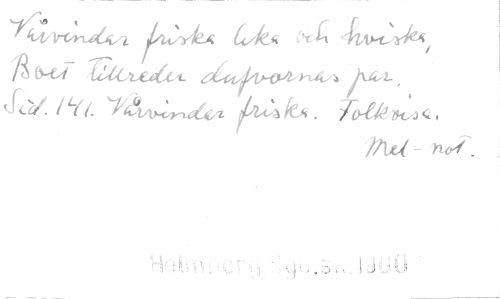 Vårvindar friska leka och hviska,
Boet tillreder dufvornas par.
Sid. 141. Vårvindar friska. Folkvisa.
Mel-not.
1900